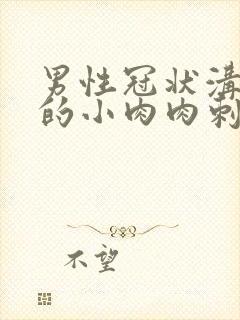 男性冠状溝
的小肉肉刺
不望